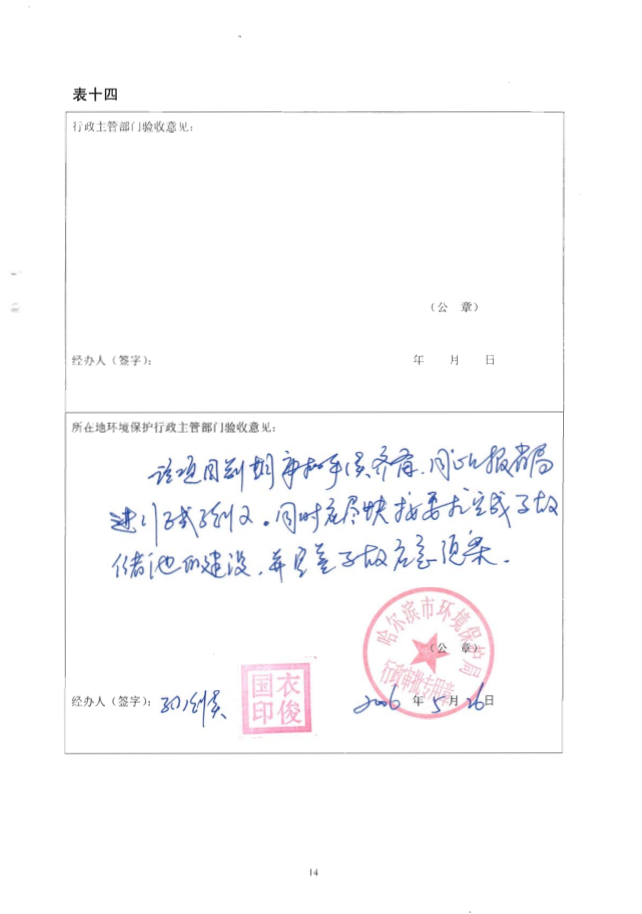 表十四
行政主管部门验收意见：
（公 章）
经办人（签字）： 年 月 日
所在地环境保护行政主管部门验收意见：
该项目前期审批手续齐备，同意报省局
进行验收。同时应尽快按要求完成事故
储池的建设，并完善事故应急预案。
哈尔滨市环境保护局
（公 章）
行政审批专用章
国衣
印俊
经办人（签字）： 2006 年 5 月 26 日
14